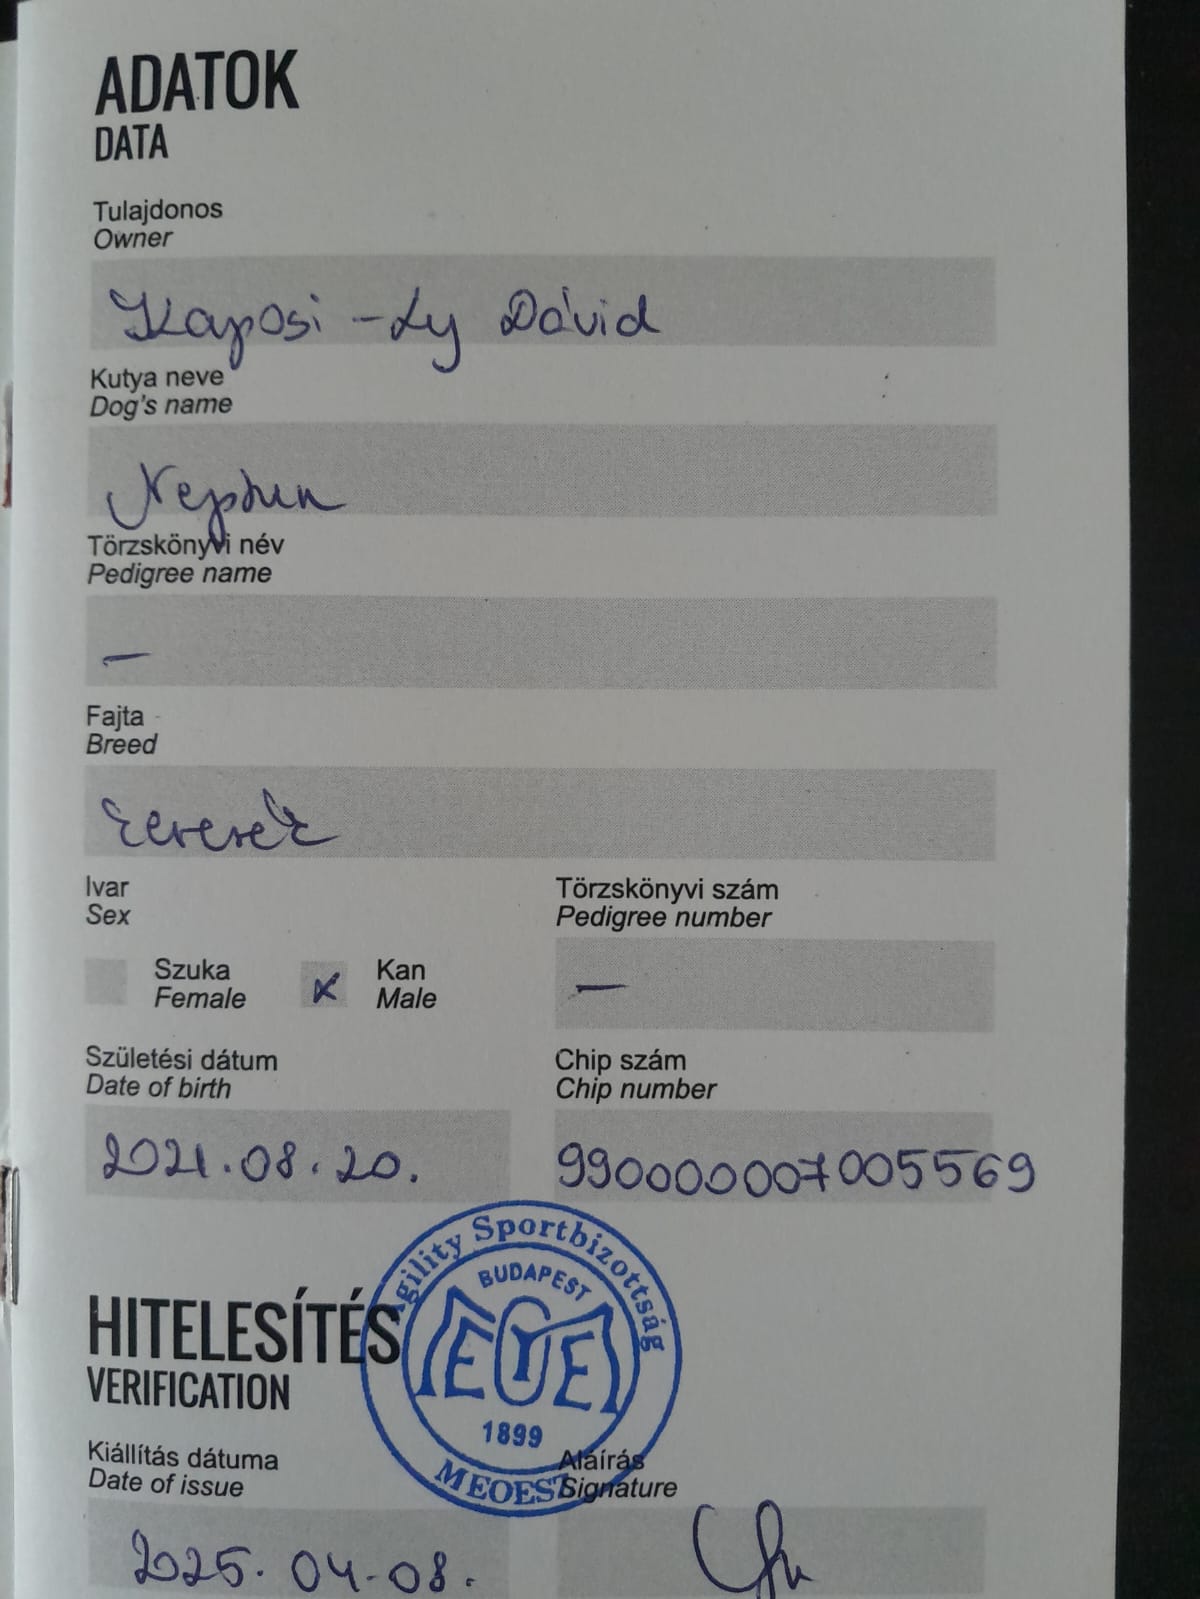 ADATOK
DATA
Tulajdonos
Owner
Kaposi - Ly Dávid
Kutya neve
Dog's name
Neptun
Törzskönyvi név
Pedigree name
—
Fajta
Breed
keverék
Ivar
Sex
Szuka
Female
x Kan
Male
Törzskönyvi szám
Pedigree number
—
Születési dátum
Date of birth
2021.08.20.
Chip szám
Chip number
990000007005569
Agility Sportbizottság
BUDAPEST
1899
MEOESZ
HITELESÍTÉS
VERIFICATION
Kiállítás dátuma
Date of issue
2025.04-08.
Aláírás
Signature